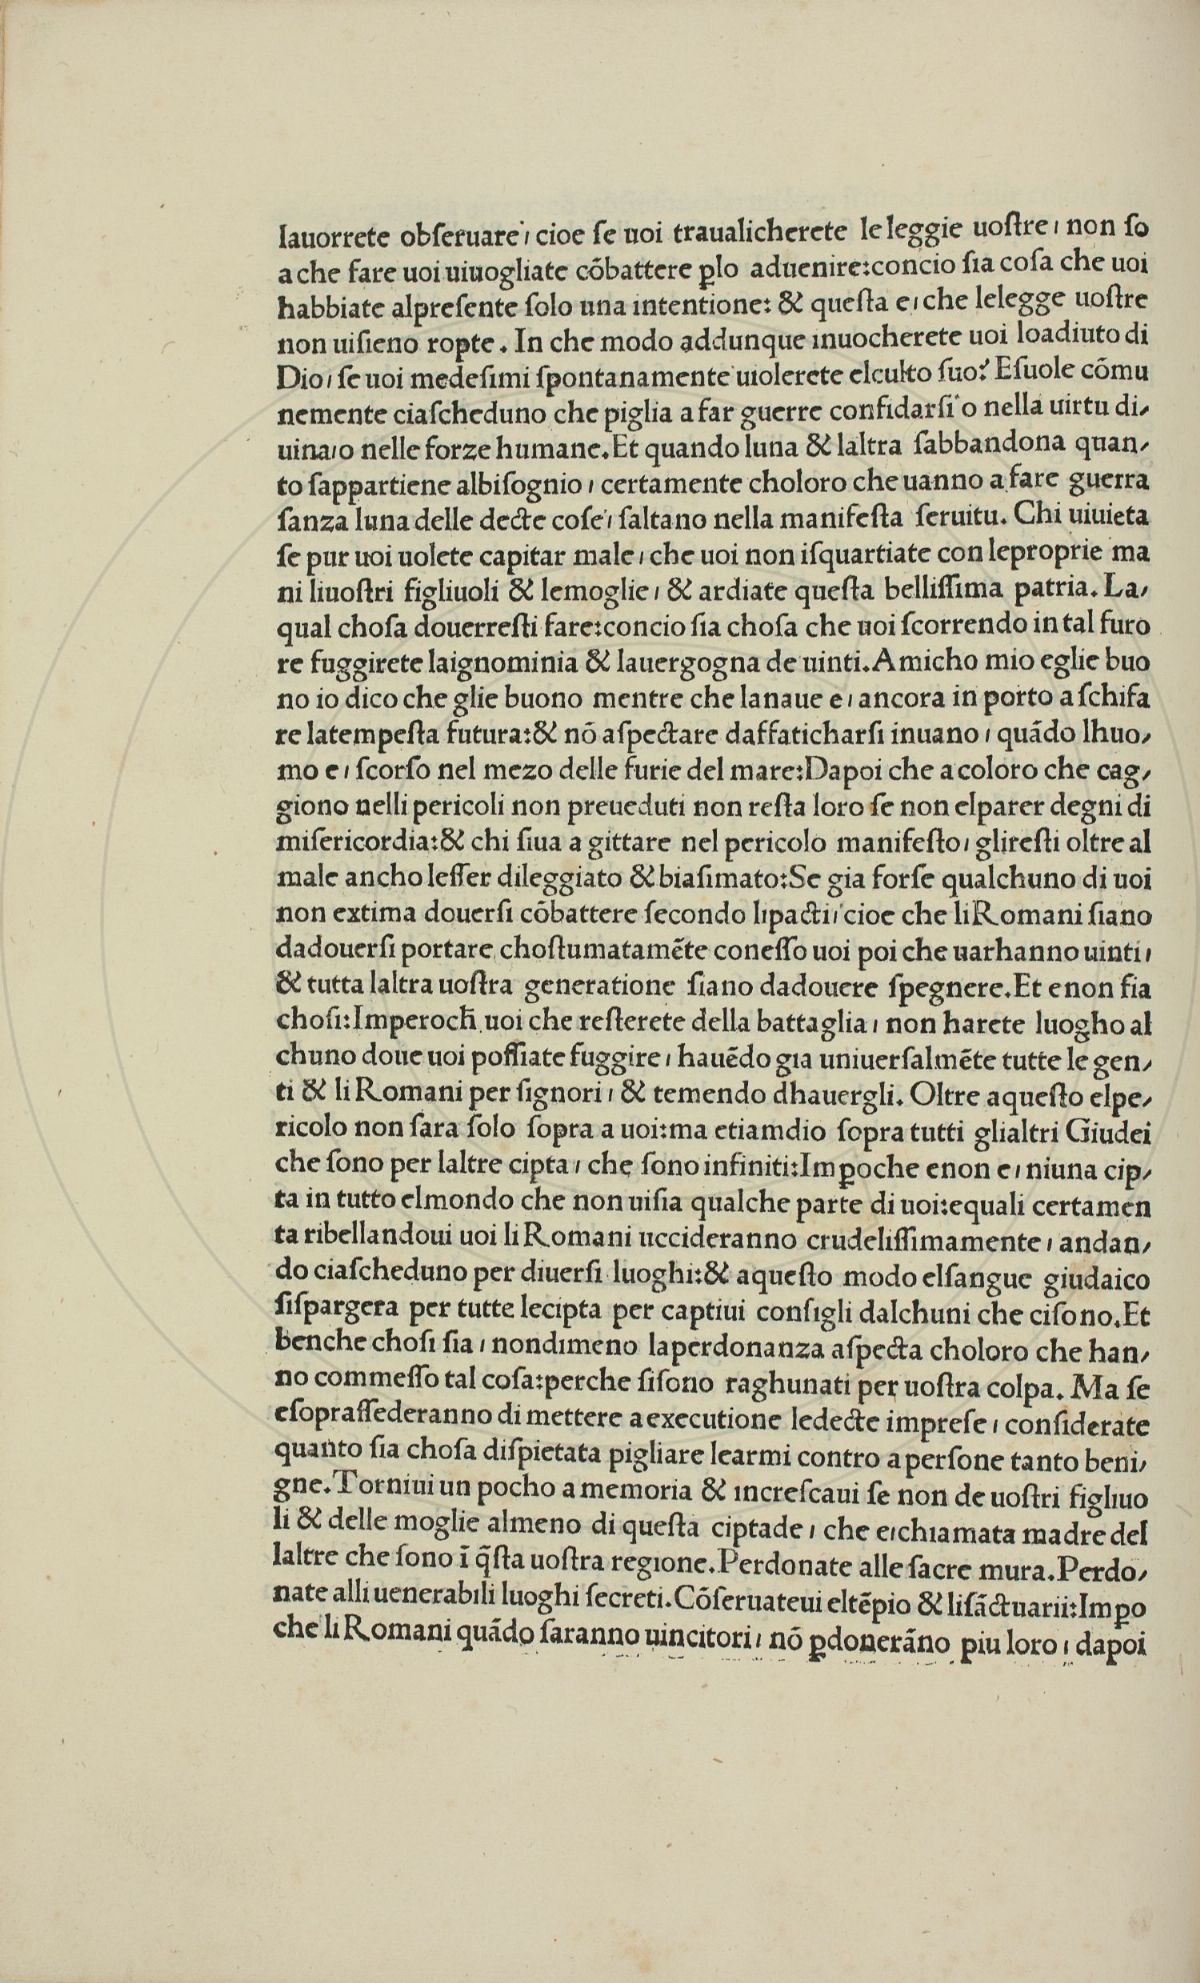 lauorrete obſeruare, cioe ſe uoi traualicherete le leggie uoſtre, non ſo
a che fare uoi uiuogliate cōbattere ꝑlo aduenire:concio ſia coſa che uoi
habbiate alpreſente ſolo una intentione: & queſta e, che lelegge uoſtre
non uiſieno ropte. In che modo addunque inuocherete uoi loadiuto di
Dio, ſe uoi medeſimi ſpontanamente uiolerete elculto ſuo? Eſuole cōmu
nemente ciaſcheduno che piglia a far guerre confidarſi o nella uirtu di/
uina, o nelle forze humane. Et quando luna & laltra ſabbandona quan/
to ſappartiene albiſognio, certamente choloro che uanno a fare guerra
ſanza luna delle decte coſe, ſaltano nella manifeſta ſeruitu. Chi uiuieta
ſe pur uoi uolete capitar male, che uoi non iſquartiate con leproprie ma
ni liuoſtri figliuoli & lemoglie, & ardiate queſta belliſſima patria. La/
qual choſa douerreſti fare:concio ſia choſa che uoi ſcorrendo in tal furo
re fuggirete laignominia & lauergogna de uinti. Amicho mio eglie buo
no io dico che glie buono mentre che lanaue e, ancora in porto a ſchifa
re latempeſta futura:& nō aſpectare daffaticharſi inuano, quādo lhuo/
mo e, ſcorſo nel mezo delle furie del mare:Dapoi che a coloro che cag/
giono nelli pericoli non preueduti non reſta loro ſe non elparer degni di
miſericordia:& chi ſiua a gittare nel pericolo manifeſto, glireſti oltre al
male ancho leſſer dileggiato & biaſimato:Se gia forſe qualchuno di uoi
non extima douerſi cōbattere ſecondo lipacti, cioe che li Romani ſiano
dadouerſi portare choſtumatamēte coneſſo uoi poi che uarhanno uinti,
& tutta laltra uoſtra generatione ſiano dadouere ſpegnere. Et e non fia
choſi:Imperoch̄ uoi che reſterete della battaglia, non harete luogho al
chuno doue uoi poſſiate fuggire, hauēdo gia uniuerſalmēte tutte le gen/
ti & li Romani per ſignori, & temendo dhauergli. Oltre aqueſto elpe/
ricolo non ſara ſolo ſopra a uoi:ma etiamdio ſopra tutti glialtri Giudei
che ſono per laltre cipta, che ſono infiniti:Imꝑoche enon e, niuna cip/
ta in tutto elmondo che non uiſia qualche parte di uoi:equali certamen
ta ribellandoui uoi li Romani uccideranno crudeliſſimamente, andan/
do ciaſcheduno per diuerſi luoghi:& aqueſto modo elſangue giudaico
ſiſpargera per tutte lecipta per captiui conſigli dalchuni che ciſono. Et
benche choſi ſia, nondimeno laperdonanza aſpecta choloro che han/
no commeſſo tal coſa:perche ſiſono raghunati per uoſtra colpa. Ma ſe
eſopraſſederanno di mettere a executione ledecte impreſe, conſiderate
quanto ſia choſa diſpietata pigliare learmi contro a perſone tanto beni/
gne. Torniui un pocho a memoria & increſcaui ſe non de uoſtri figliuo
li & delle moglie almeno di queſta ciptade, che e, chiamata madre del
laltre che ſono ī q̄ſta uoſtra regione. Perdonate alle ſacre mura. Perdo/
nate alli uenerabili luoghi ſecreti. Cōſeruateui eltēpio & liſāctuarii:Imꝑo
che li Romani quādo ſaranno uincitori, nō ꝑdonerāno piu loro, dapoi